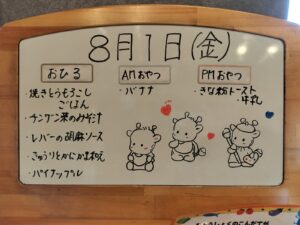 8月1日(金)
おひる
・焼きとうもろこし
ごはん
・チンゲン菜のみそ汁
・レバーの胡麻ソース
・きゅうりとかにかまあえ
・パイナップル
AMおやつ
・バナナ
PMおやつ
・きな粉トースト
・牛乳